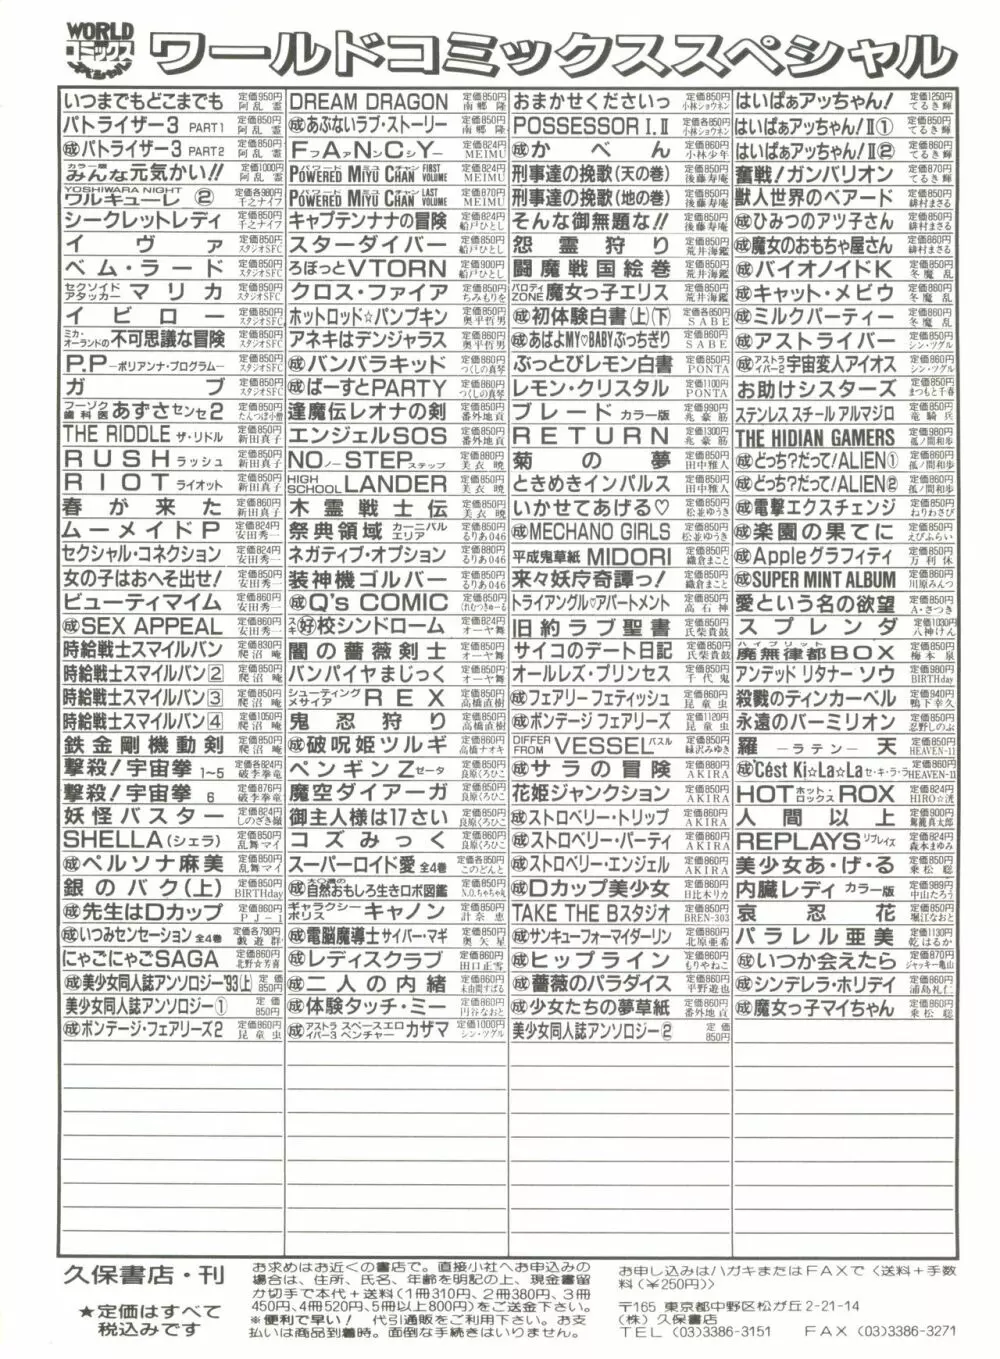 WORLD
コミックス
スペシャル
ワールドコミックススペシャル
いつまでもどこまでも 定価950円 阿乱霊
パトライザー3 PART1 定価850円 阿乱霊
成パトライザー3 PART2 定価850円 阿乱霊
カラー版 みんな元気かい!! 定価1000円 阿乱霊
YOSHIWARA NIGHT ワルキューレ ② 定価各980円 千之ナイフ
シークレットレディ 定価850円 千之ナイフ
イヴァ 定価850円 スタジオSFC
ベム・ラード 定価850円 スタジオSFC
セクソイドアタッカー マリカ 定価850円 スタジオSFC
イビロー 定価850円 スタジオSFC
ミカ・オーランドの不可思議な冒険 定価850円 スタジオSFC
P.P―ポリアンナ・プログラム― 定価850円 スタジオSFC
ガブ 定価850円 スタジオSFC
フーゾク歯科医 あずさセンセ2 定価850円 たんつぼ小僧
THE RIDDLE ザ・リドル 定価850円 新田真子
RUSH ラッシュ 定価850円 新田真子
RIOT ライオット 定価850円 新田真子
春が来た 定価860円 新田真子
ムーメイドP 定価824円 安田秀一
セクシャル・コネクション 定価824円 安田秀一
女の子はおへそ出せ! 定価850円 安田秀一
ビューティマイム 定価860円 安田秀一
成SEX APPEAL 定価860円 安田秀一
時給戦士スマイルバン 定価830円 爬沼庵
時給戦士スマイルバン2 定価860円 爬沼庵
時給戦士スマイルバン3 定価850円 爬沼庵
時給戦士スマイルバン4 定価1050円 爬沼庵
鉄金剛機動剣 定価860円 爬沼庵
撃殺!宇宙拳 1~5 定価各824円 破李拳竜
撃殺!宇宙拳 6 定価876円 破李拳竜
妖怪バスター 定価824円 しのざき嶺
SHELLA(シェラ) 定価850円 乱舞マイ
成ペルソナ麻美 定価850円 乱舞マイ
銀のバク(上) 定価850円 BIRTHday
成先生はDカップ 定価860円 PJ-1
成いつみセンセーション 全4巻 定価各790円 戯遊群
にゃごにゃごSAGA 定価860円 北野☆芳喜
成美少女同人誌アンソロジー'93(上) 定価850円
美少女同人誌アンソロジー① 定価850円
成ボンデージ・フェアリーズ2 定価860円 昆童虫
DREAM DRAGON 定価850円 南郷隆
成あぶないラブ・ストーリー 定価850円 南郷隆
FANCY ファンシー 定価824円 MEIMU
POWERED MIYU CHAN パワードミユチャン FIRST VOLUME 定価824円 MEIMU
POWERED MIYU CHAN パワードミユチャン LAST VOLUME 定価870円 MEIMU
キャプテンナナの冒険 定価824円 船戸ひとし
スターダイバー 定価850円 船戸ひとし
ろぼっとVTORN 定価900円 船戸ひとし
クロス・ファイア 定価850円 ちみもりを
ホットロッド☆パンプキン 定価850円 奥平哲男
アネキはデンジャラス 定価860円 奥平哲男
成バンバラキッド 定価860円 つくしの真琴
成ばーすとPARTY 定価860円 つくしの真琴
逢魔伝レオナの剣 定価850円 番外地貢
エンジェルSOS 定価850円 番外地貢
NO ノー STEP ステップ 定価880円 美衣暁
HIGH SCHOOL LANDER 定価850円 美衣暁
木霊戦士伝 定価850円 美衣暁
祭典領域 カーニバルエリア 定価824円 るりあ046
ネガティブ・オプション 定価880円 るりあ046
装神機ゴルバー 定価850円 るりあ046
成Q's COMIC 定価850円 (れむつきゅーる)
スキ好校シンドローム 定価824円 オーヤ舞
闇の薔薇剣士 定価850円 オーヤ舞
バンパイヤまじっく 定価850円 オーヤ舞
シューティングメサイア REX 定価850円 高橋直樹
鬼忍狩り 定価850円 高橋直樹
成破呪姫ツルギ 定価860円 高橋ナオキ
ペンギンZ ゼータ 定価850円 良原くろひこ
魔空ダイアーガ 定価850円 良原くろひこ
御主人様は17さい 定価850円 良原くろひこ
コズみっく 定価860円 良原くろひこ
スーパーロイド愛 全4巻 定価850円 このどんと
成 大○邁の自然おもしろ生きロボ図鑑 定価850円 N.O.ちゃちゃ丸
ギャラクシーポリス キャノン 定価850円 計奈恵
成電脳魔導士 サイバー・マギ 定価850円 奥矢星
成レディスクラブ 定価860円 田口正雪
成二人の内緒 定価860円 未由間すばる
成体験タッチ・ミー 定価860円 円谷なおと
成アストライバー3 スペースエロベンチャー カザマ 定価1000円 シン・ツグル
おまかせくださいっ 定価850円 小林ショウネン
POSSESSOR I.II 定価各850円 小林ショウネン
成かべん 定価860円 小林少年
刑事達の挽歌(天の巻) 定価850円 後藤寿庵
刑事達の挽歌(地の巻) 定価850円 後藤寿庵
そんな御無題な!! 定価850円 後藤寿庵
怨霊狩り 定価850円 荒井海鑑
闘魔戦国絵巻 定価850円 荒井海鑑
パロディZONE 魔女っ子エリス 定価850円 荒井海鑑
成初体験白書(上)(下) 定価各850円 SABE
成あばよMY♡BABYぶっちぎり 定価860円 SABE
ぶっとびレモン白書 定価850円 PONTA
レモン・クリスタル 定価1100円 PONTA
ブレード カラー版 定価990円 兆豪筋
RETURN 定価1300円 兆豪筋
菊の夢 定価850円 田中雅人
ときめきインパルス 定価850円 田中雅人
いかせてあげる♡ 定価850円 松並ゆうき
成MECHANO GIRLS 定価860円 松並ゆうき
平成鬼草紙 MIDORI 定価850円 織倉まこと
来々妖庁奇譚っ! 定価850円 織倉まこと
トライアングル♡アパートメント 定価850円 高石神
旧約ラブ聖書 定価850円 氏柴貴鼓
サイコのデート日記 定価850円 氏柴貴鼓
オールレズ・プリンセス 定価850円 千代鬼
成フェアリー フェティッシュ 定価860円 昆童虫
成ボンデージ フェアリーズ 定価1120円 昆童虫
DIFFER FROM VESSEL バスル 定価850円 緑沢みゆき
成サラの冒険 定価850円 AKIRA
花姫ジャンクション 定価850円 AKIRA
成ストロベリー・トリップ 定価860円 AKIRA
成ストロベリー・パーティ 定価860円 AKIRA
成ストロベリー・エンジェル 定価860円 AKIRA
成Dカップ美少女 定価860円 日比木リカ
TAKE THE Bスタジオ 定価850円 BREN-303
成サンキューフォーマイダーリン 定価860円 北原亜希
成ヒップライン 定価860円 もりやねこ
成薔薇のパラダイス 定価860円 平野遊也
成少女たちの夢草紙 定価860円 番外地貢
美少女同人誌アンソロジー② 定価850円
はいぱぁアッちゃん! 定価1250円 てるき輝
はいぱぁアッちゃん!II① 定価850円 てるき輝
はいぱぁアッちゃん!II② 定価860円 てるき輝
奮戦!ガンバリオン 定価870円 てるき輝
獣人世界のベアード 定価850円 緋村まさる
成ひみつのアツ子さん 定価850円 緋村まさる
成魔女のおもちゃ屋さん 定価860円 緋村まさる
成バイオノイドK 定価850円 冬魔乱
成キャット・メビウ 定価860円 冬魔乱
成ミルクパーティー 定価860円 冬魔乱
成アストライバー 定価850円 シン・ツグル
成アストライバー2 宇宙変人アイオス 定価860円 シン・ツグル
お助けシスターズ 定価850円 まつもと千春
ステンレス スチール アルマジロ 定価850円 竜騎兵
THE HIDIAN GAMERS 定価980円 孤ノ間和歩
成どっち?だって!ALIEN① 定価860円 孤ノ間和歩
成どっち?だって!ALIEN② 定価860円 孤ノ間和歩
成電撃エクスチェンジ 定価850円 ねりわさび
成楽園の果てに 定価860円 えびふらい
成Appleグラフィティ 定価860円 万利休
成SUPER MINT ALBUM 定価860円 川原みんつ
愛という名の欲望 定価850円 A・さつき
スプレンダ 定価1030円 八神けん
廃無律都BOX ハイブリット 定価850円 梅本泉
アンデッド リタナー ソウ 定価980円 BIRTHday
殺戮のティンカーベル 定価940円 鴨下幸久
永遠のバーミリオン 定価850円 忍野しのぶ
羅―ラテン―天 定価850円 HEAVEN-11
成'Cést Ki☆La☆La セ・キ・ラ・ラ 定価860円 HEAVEN-11
HOT ホット・ロックス ROX 定価824円 HIRO☆洸
人間以上 定価900円 駕籠真太郎
REPLAYS リプレイズ 定価824円 森本まゆみ
美少女あ・げ・る 定価850円 乗松聡
内臓レディ カラー版 定価989円 中山たろう
哀忍花 定価850円 堀江なおと
パラレル亜美 定価1130円 乾はるか
成いつか会えたら 定価870円 ジャッキー亀山
成シンデレラ・ホリデイ 定価860円 浦島礼仁
成魔女っ子マイちゃん 定価860円 乗松聡
久保書店・刊
★定価はすべて税込みです
お求めはお近くの書店で。直接小社へお申込みの
場合は、住所、氏名、年齢を明記の上、現金書留
か切手で本代+送料(1冊310円、2冊380円、3冊
450円、4冊520円、5冊以上800円)をご送金下さい。
※便利で早い! 代引通販をご利用下さい。お支
払いは商品到着時。面倒な手続きはいりません。
お申し込みはハガキまたはFAXで〈送料+手数
料(¥250円)〉
〒165 東京都中野区松が丘2-21-14
(株)久保書店
TEL (03)3386-3151 FAX (03)3386-3271